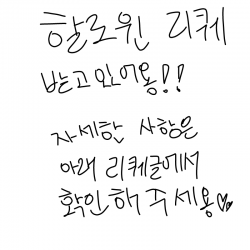 할로윈 리퀘
받고있어용!!
자세한 사항은
아래 리퀘글에서
확인해주세용♡♡